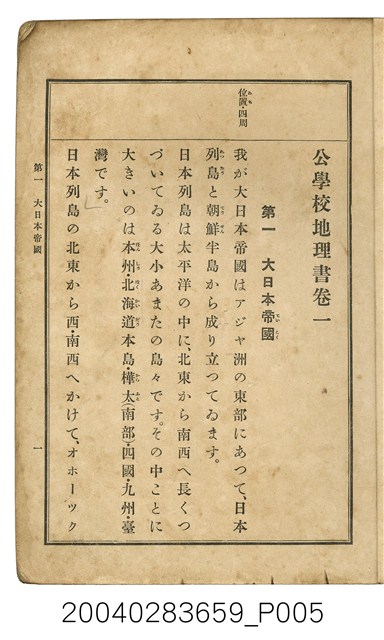 公學校地理書卷一
第一 大日本帝國
位置・四周
我が大日本帝國はアジヤ洲の東部にあつて、日本
列島と朝鮮半島から成り立つてゐます。
日本列島は太平洋の中に、北東から南西へ長くつ
づいてゐる大小あまたの島々です。その中ことに
大きいのは本州・北海道本島・樺太(南部)・四國・九州・臺
灣です。
日本列島の北東から西・南西へかけて、オホーツク
第一 大日本帝國
一
20040283659_P005